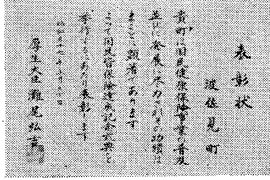 表彰状
波佐見町
貴町は国民健康保険事業の普及
並に発展に尽力されその功績は
まことに顕著であります
よって国民皆保険達成記念式典を
挙行するにあたり表彰します
厚生大臣 灘尾弘吉